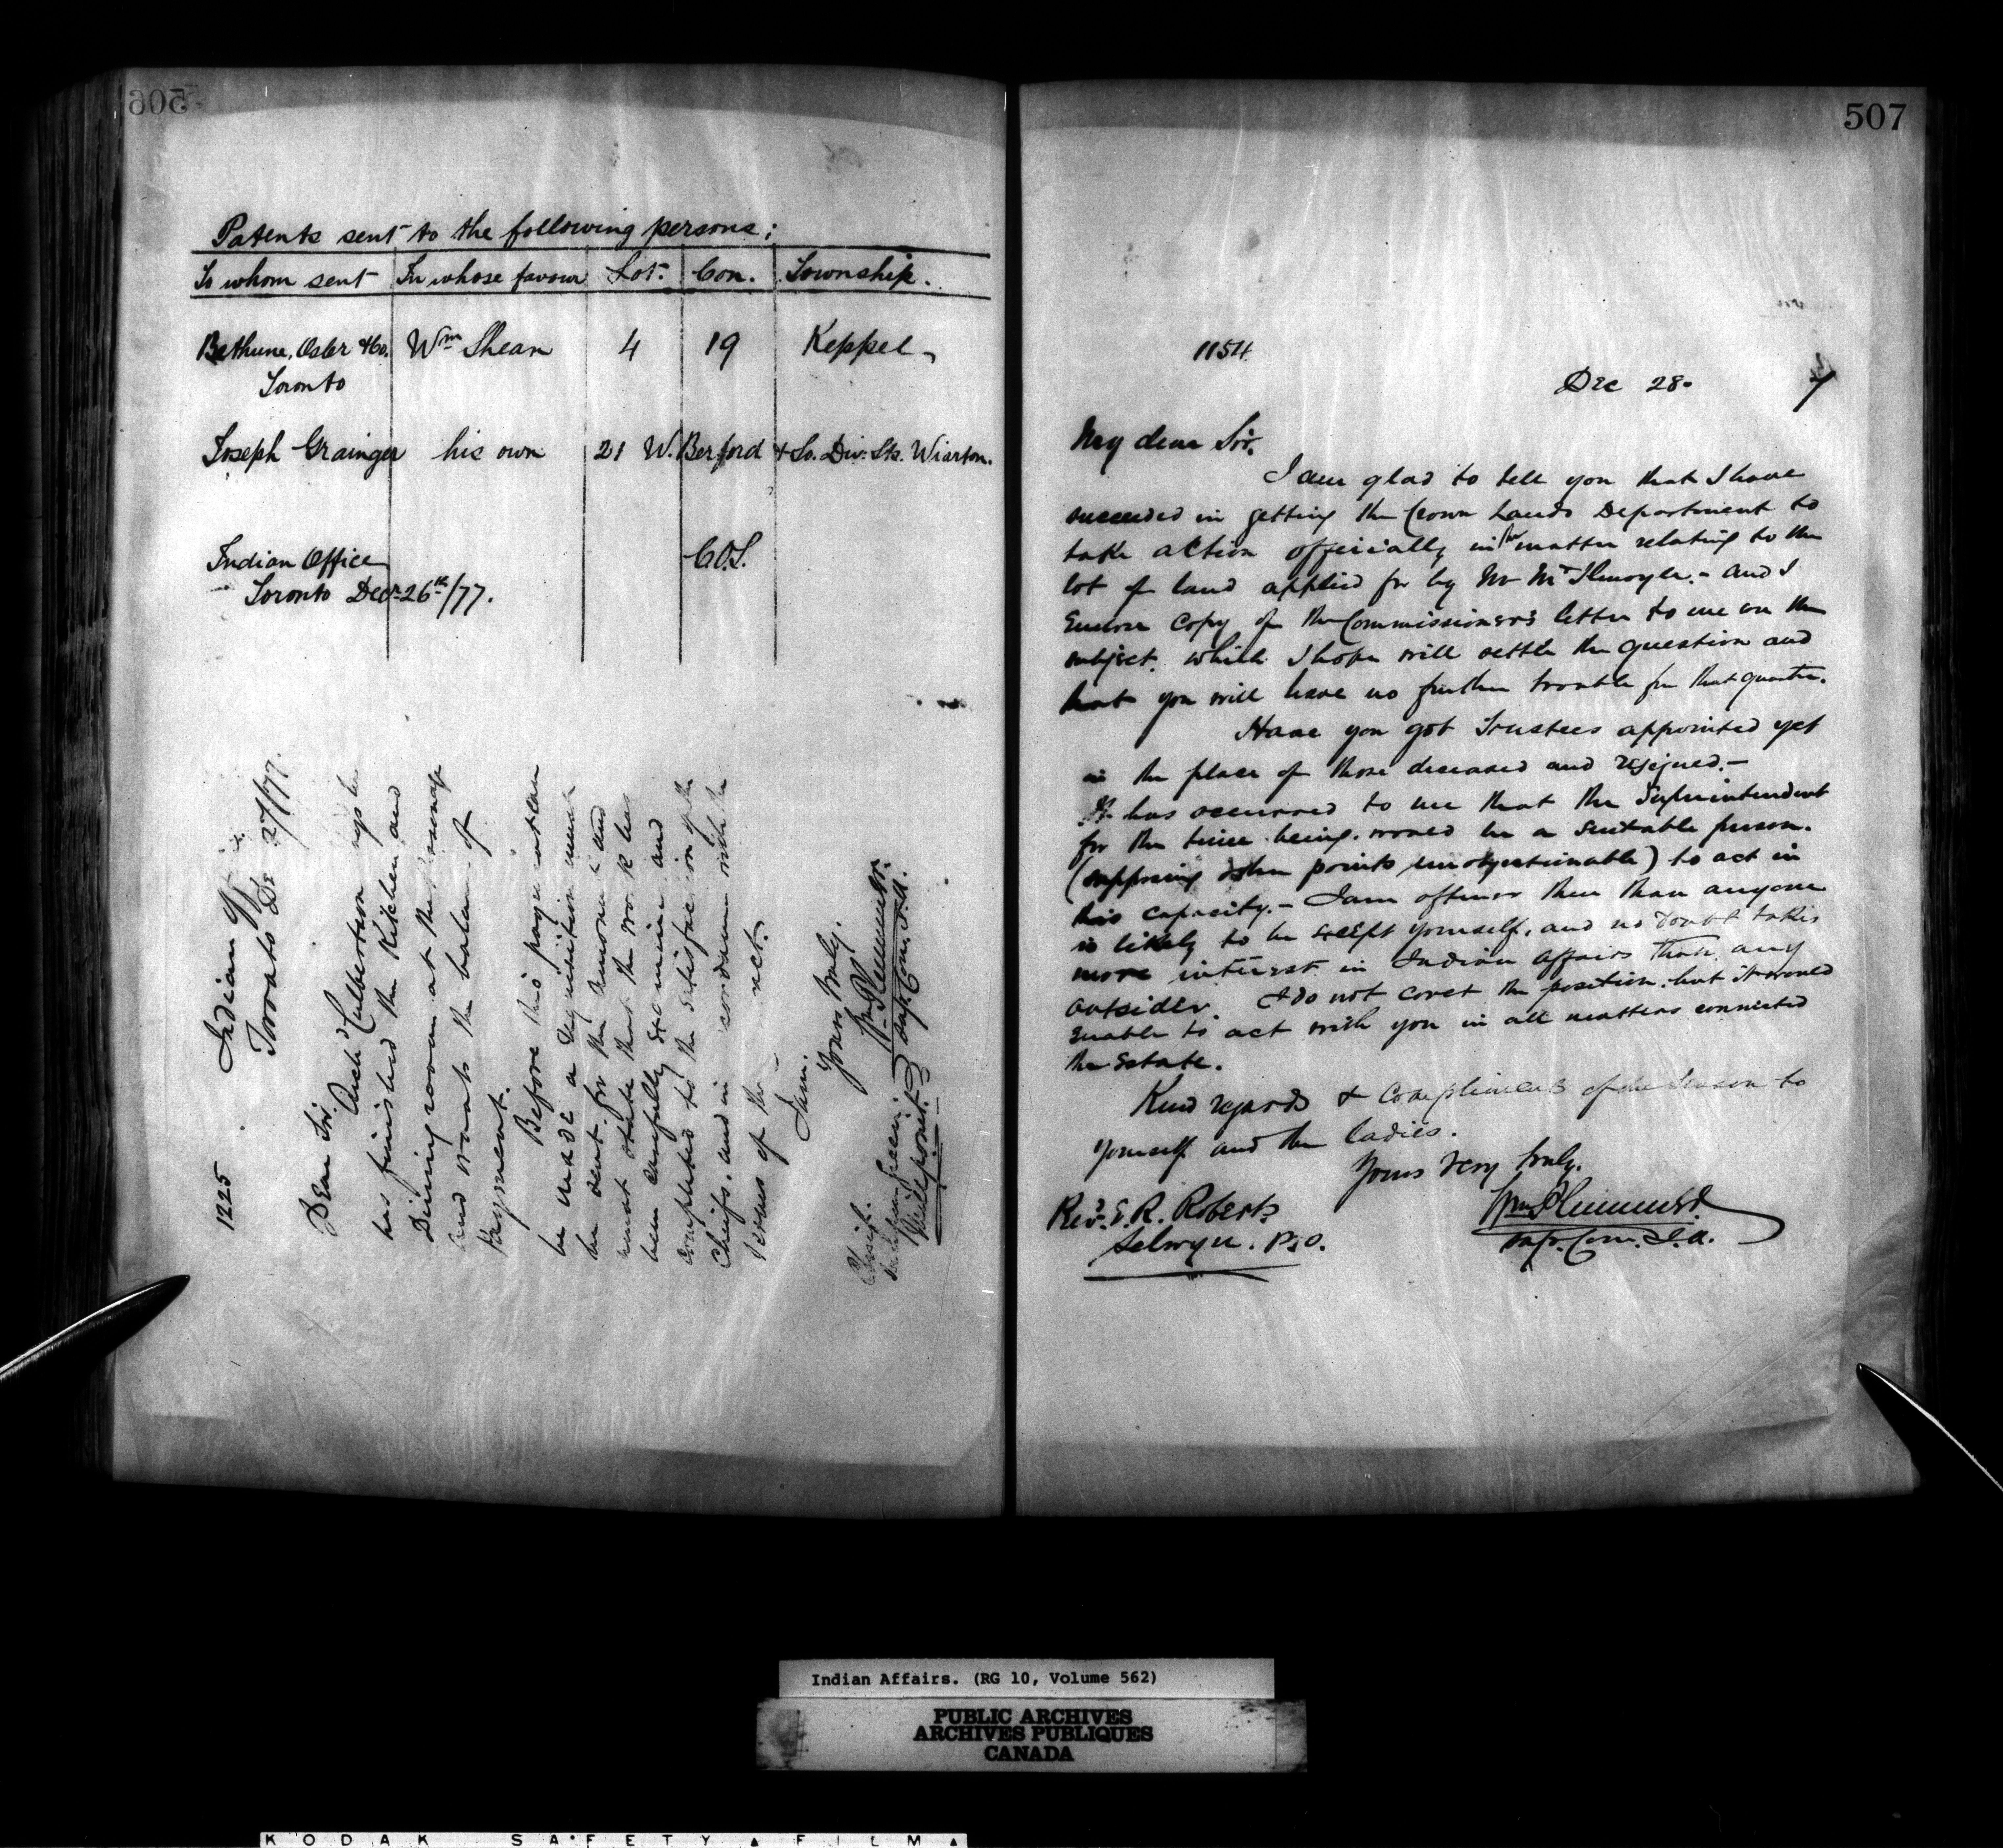 506
Patents sent to the following persons;
To whom sent In whose favour Lot. Con. Township.
Bethune, Osler & Co. Wm Shean 4 19 Keppel
Toronto
Joseph Grainger his own 21 W. Berford & So. Div. Sts. Wiarton.
Indian Office
Toronto Decr 26th/77.
C.O.S.
1225
Indian Off
Toronto De 27/77.
Dear Sir.
Archd Culbertson says he
has finished the Kitchen and
Dining room at the
and wants the balance of
Payment.
Before this payment can
be made a Requisition must
be sent for the amount and
must state that the work has
been carefully examined and
completed to the satisfaction of the
Chiefs. and in accordance with the
terms of the
I am.
Yours truly.
Wm Plummer.
Supt. Com. I. A.
Chief.
Green.
Millpoint.
507
1154.
Dec 28. 7
My dear Sir.
I am glad to tell you that I have
succeeded in getting the Crown Lands Department to
take action officially in the matter relating to the
lot of land applied for by Mr - and I
Enclose Copy of the Commissioner's letter to me on the
subject. which I hope will settle the question and
that you will have no further trouble fm that quarter.
Have you got Trustees appointed yet
in the place of those deceased and resigned.-
It has occurred to me that the Superintendent
for the time being. would be a suitable person.
(supposing other points unobjectionable) to act in
this capacity.- I am oftener there than anyone
is likely to be except yourself. and no doubt takes
more interest in Indian Affairs than any
outsider. I do not covet the position. but it would
enable to act with you in all matters connected
the Estate.
Kind regards & Compliments of the Season to
yourself and the ladies.
Yours very truly.
Wm Plummer
Supt. Com. I. A.
Revd. E. R. Roberts
Selwyn. P.O.
Indian Affairs. (RG 10, Volume 562)
PUBLIC ARCHIVES
ARCHIVES PUBLIQUES
CANADA
KODAK SAFETY FILM